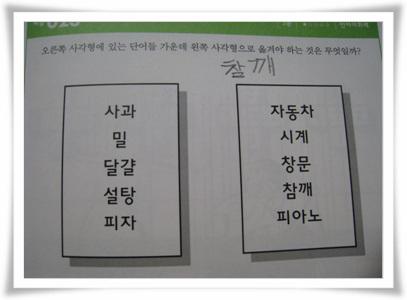 오른쪽 사각형에 있는 단어들 가운데 왼쪽 사각형으로 옮겨야 하는 것은 무엇일까?
참깨
사과
밀
달걀
설탕
피자
자동차
시계
창문
참깨
피아노